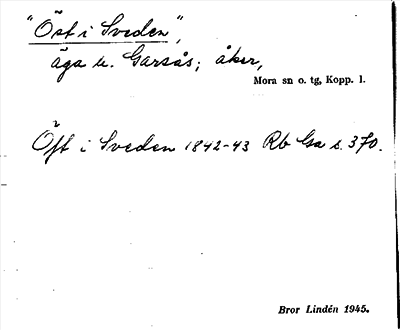 "Öst i Sveden",
äga u. Garsås; åker,
Mora sn o. tg, Kopp. l.
Öft i Sveden 1842-43 Rb Gsa s. 370.
Bror Lindén 1945.